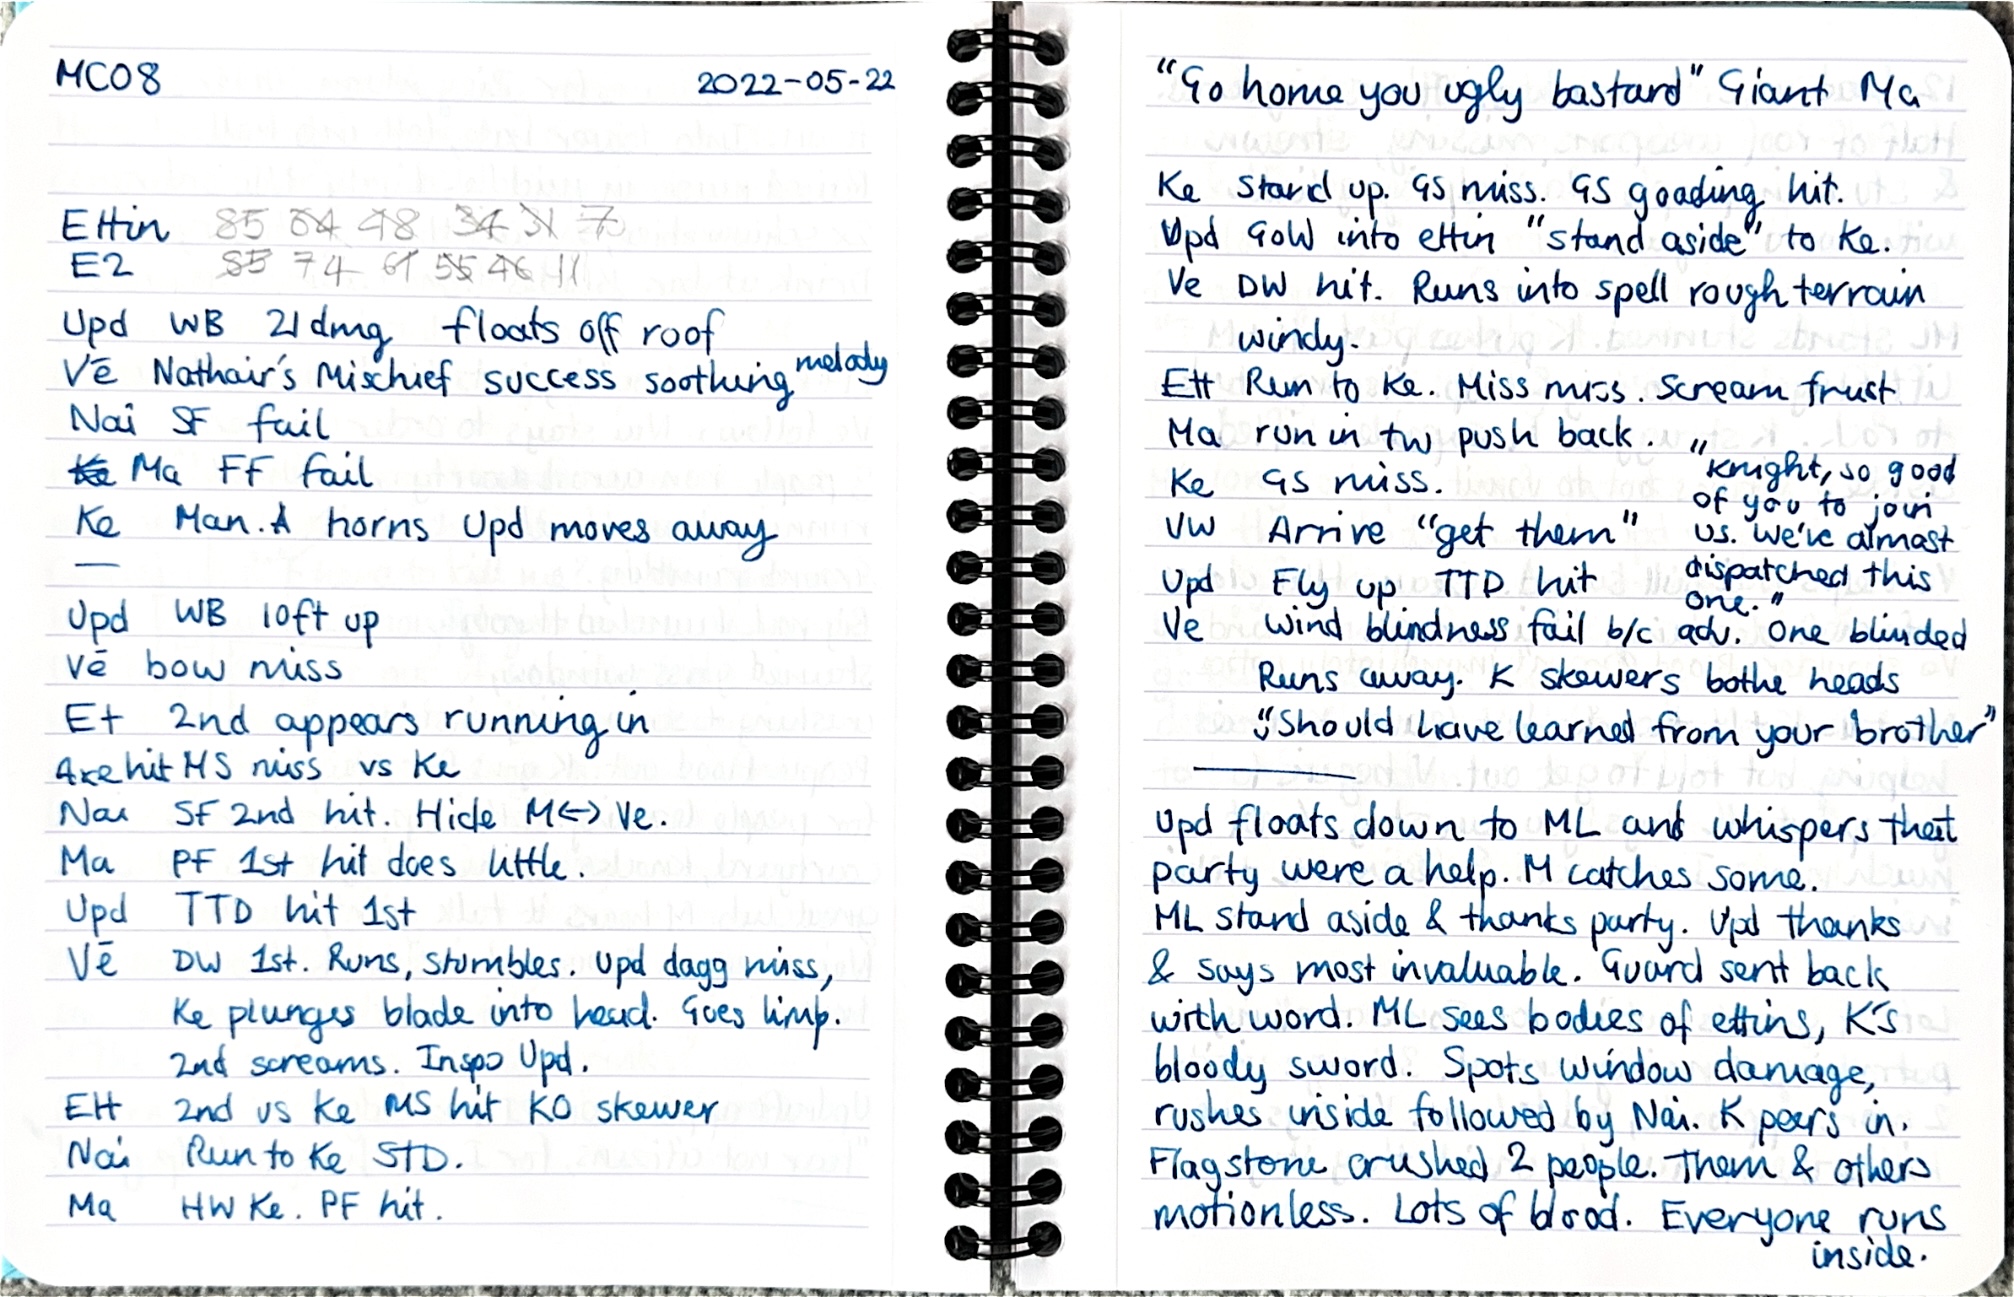 MC08 2022-05-22
Ettin 85 64 48 34 31 7
E2 85 74 61 55 46 41
Upd WB 21 dmg floats off roof
Vē Nathair's Mischief success soothing melody
Nai SF fail
Ke Ma FF fail
Ke Man. A horns Upd moves away
—
Upd WB 10ft up
Vē bow miss
Et 2nd appears running in
Axe hit MS miss vs Ke
Nai SF 2nd hit. Hide M<->Ve.
Ma PF 1st hit does little.
Upd TTD hit 1st
Vē DW 1st. Runs, stumbles. Upd dagg miss,
Ke plunges blade into head. Goes limp.
2nd screams. Inspo Upd.
Ett 2nd vs Ke MS hit KO skewer
Nai Run to Ke STD.
Ma HW Ke. PF hit.
"Go home you ugly bastard" Giant Ma
Ke Stand up. GS miss. GS goading hit.
Upd GoW into ettin "stand aside" to Ke.
Ve DW hit. Runs into spell rough terrain
windy.
Ett Run to Ke. Miss miss. Scream frust
Ma run in tw push back.
Ke GS miss.
VW Arrive "get them"
"Knight, so good
of you to join
us. We've almost
dispatched this
one."
Upd Fly up TTD hit
Ve wind blindness fail b/c adv. One blinded
Runs away. K skewers bothe heads
"Should have learned from your brother"
Upd floats down to ML and whispers that
party were a help. M catches some.
ML stand aside & thanks party. Upd thanks
& says most invaluable. Guard sent back
with word. ML sees bodies of ettins, K's
bloody sword. Spots window damage,
rushes inside followed by Nai. K peers in.
Flagstone crushed 2 people. Them & others
motionless. Lots of blood. Everyone runs
inside.